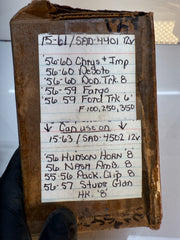 15-61 / SAD-4401 12v
'56-60 Chrys + Imp
'56-60 DeSoto
'56-60 Dod. Trk 8
'56-59 Fargo
'56 59 Ford Trk 6"
F 100, 250, 350
↓ Can use on ↓
15-63 / SAD-4502 12v
'56 Hudson Horn 8
'56 Nash Amb. 8
55-56 Pack. Clip 8
56-57 Stude Glen
HK. '8'